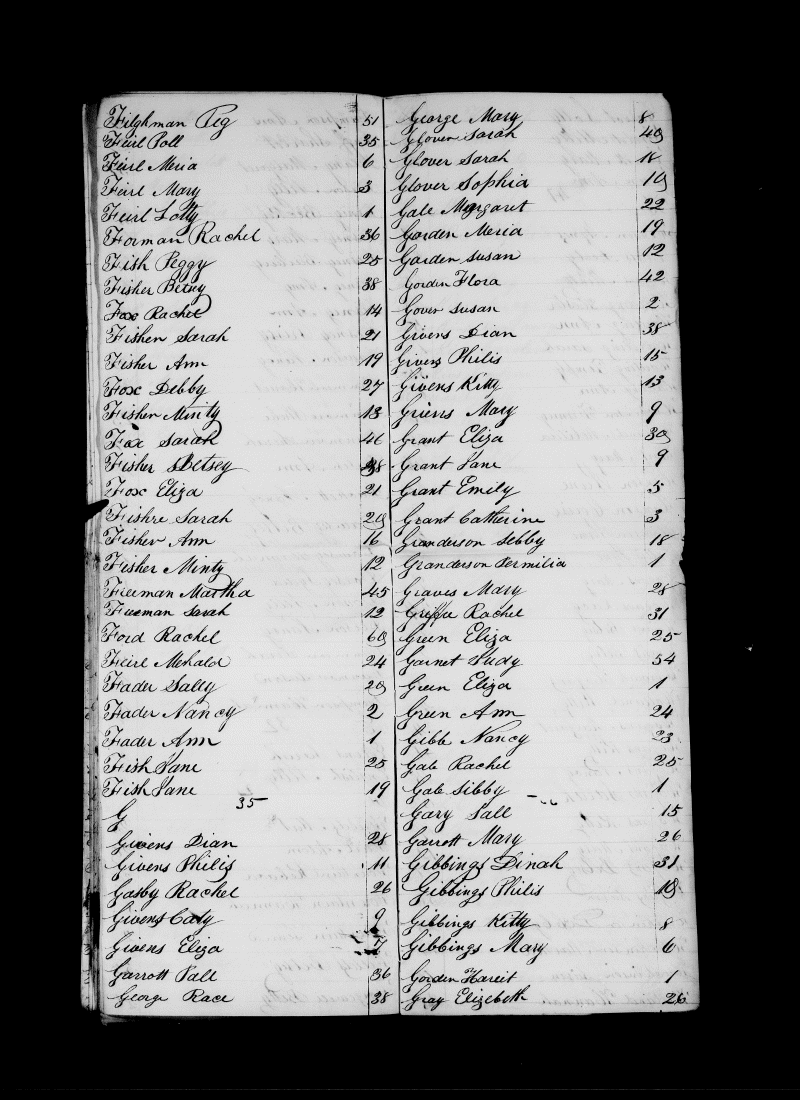 Filghman Peg 51
Feirl Poll 35
Feirl Meria 6
Feirl Mary 3
Feirl Lotty 1
Forman Rachel 36
Fish Peggy 25
Fisher Betsy 38
Fox Rachel 14
Fisher Sarah 21
Fisher Ann 19
Fox Debby 27
Fisher Minty 13
Fox Sarah 46
Fisher Betsey 38
Fox Eliza 21
Fishre Sarah 20
Fisher Ann 16
Fisher Minty 12
Freeman Martha 45
Freeman Sarah 12
Ford Rachel 60
Feirl Mehala 24
Fader Sally 20
Fader Nancy 2
Fader Ann 1
Fish Jane 25
Fish Jane 19
35
G
Givens Dian 28
Givens Philis 11
Gasby Rachel 26
Givens Caty 9
Givens Eliza 7
Garrott Sall 36
George Race 38
George Mary 8
Glover Sarah 40
Glover Sarah 18
Glover Sophia 10
Gale Margaret 22
Gorden Meria 19
Garden Susan 12
Gorden Flora 42
Gover Susan 2
Givens Dian 38
Givens Philis 15
Givens Kitty 13
Griens Mary 9
Grant Eliza 30
Grant Jane 9
Grant Emily 5
Grant Catherine 3
Granderson Sebby 18
Granderson Permilia 1
Graves Mary 28
Rachel 31
Green Eliza 25
Garnet Judy 54
Green Eliza 1
Green Ann 24
Gibb Nancy 23
Gale Rachel 25
Gale Sibby 1
Gary Sall 15
Garrott Mary 26
Gibbings Dinah 31
Gibbings Philis 10
Gibbings Kitty 8
Gibbings Mary 6
Gorden Hareit 1
Gray Elizebeth 26